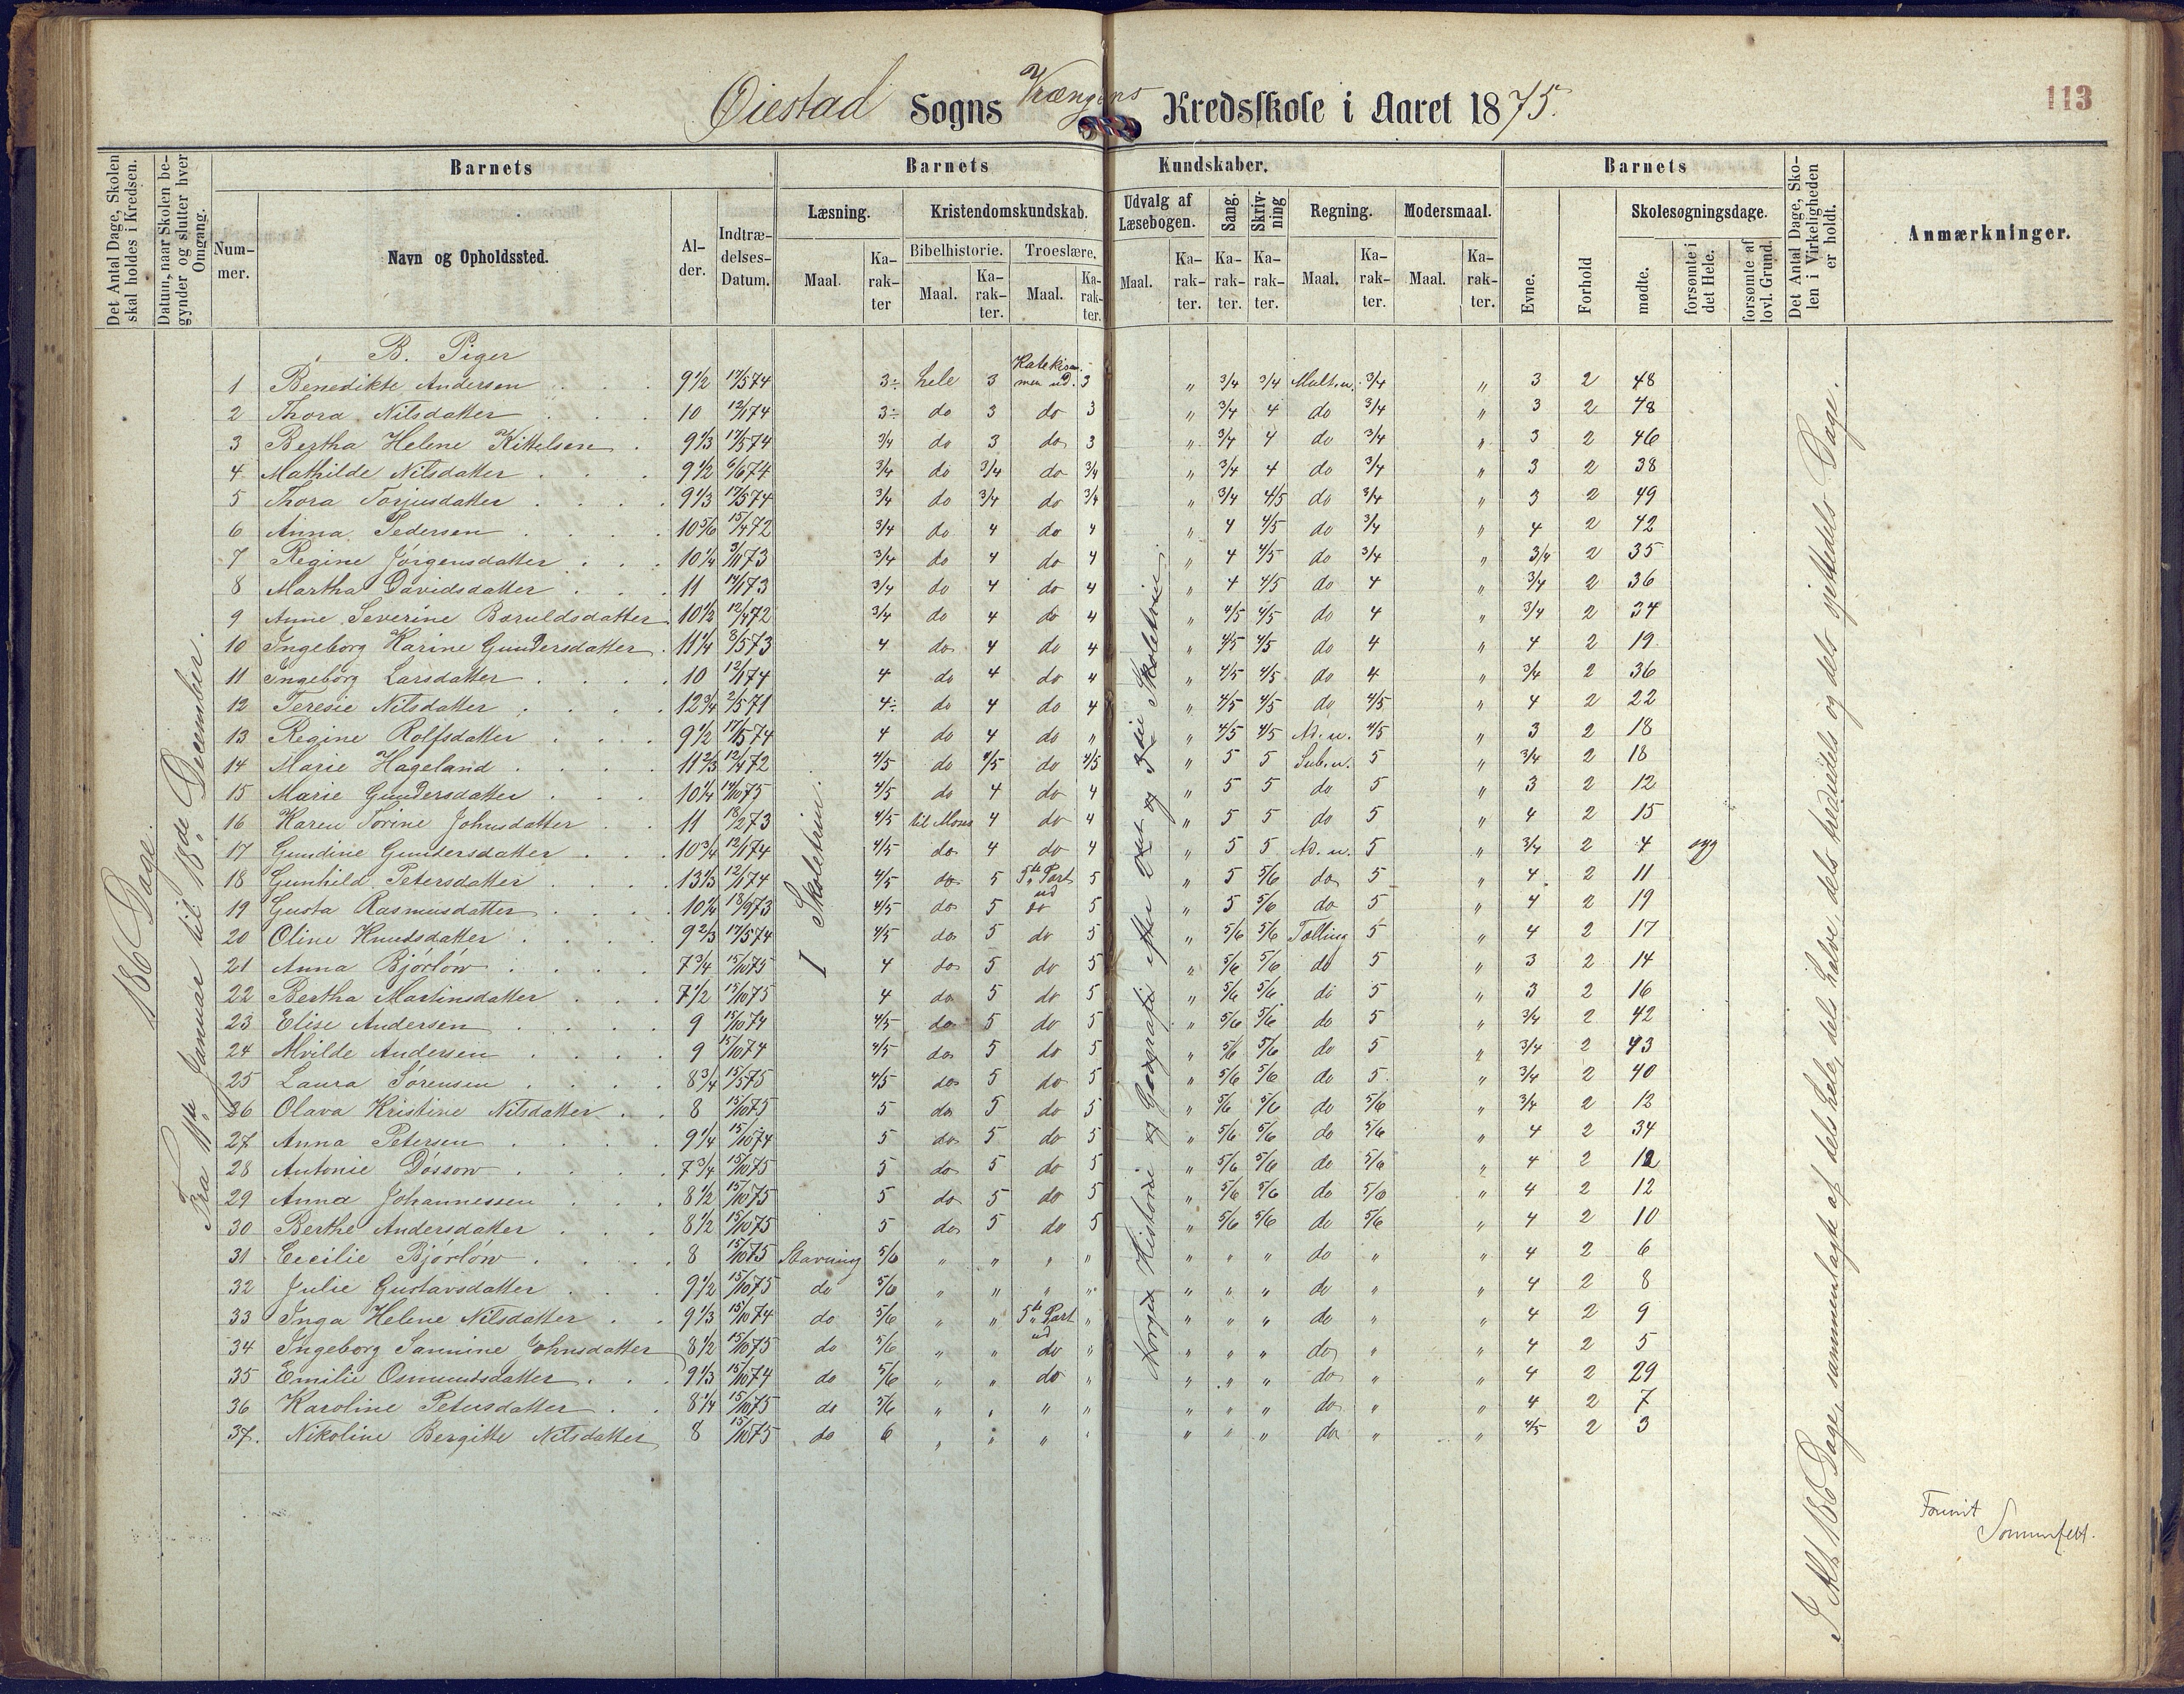 Øiestad Sogns Vrængens Kredsskole i Aaret 1875.
113
Det Antal Dage, Skolen skal holdes i Kredsen.
Datum, naar Skolen begynder og slutter hver Omgang.
Barnets
Barnets Kundskaber.
Barnets
Det Antal Dage, Skolen i Virkeligheden er holdt.
Anmærkninger.
Nummer.
Navn og Opholdssted.
Alder.
Indtrædelses-Datum.
Læsning.
Kristendomskundskab.
Udvalg af Læsebogen.
Sang.
Skrivning
Regning.
Modersmaal.
Evne.
Forhold
Skolesøgningsdage.
Bibelhistorie.
Troeslære.
mødte.
forsømte i det Hele.
forsømte af lovl. Grund.
Maal. Karakter Maal. Karakter. Maal. Karakter. Maal. Karakter. Karakter. Karakter. Maal. Karakter. Maal. Karakter.
186 Dage.
Fra 11te Januar til 18de December.
I Skoletrin.
Norges Historie og Geografi efter 2det og 3die Skoletrin.
I Alt 186 Dage, sammenlagte af dels hele, dels halve, dels trediedels og dels sjettedels Dage.
B. Piger
1 Benedikte Andersen 9 1/2 17/5 74 3÷ hele 3 Katekismen ud. 3 " 3/4 3/4 Mult.u. 3/4 " 3 2 48
2 Thora Nilsdatter 10 12/1 74 3÷ do 3 do 3 " 3/4 4 do 3/4 " 3 2 48
3 Bertha Helene Kittelsen 9 1/3 17/5 74 3/4 do 3 do 3 " 3/4 4 do 3/4 " 3 2 46
4 Mathilde Nilsdatter 9 1/2 6/6 74 3/4 do 3/4 do 3/4 " 3/4 4 do 3/4 " 3 2 38
5 Thora Torjusdatter 9 1/3 17/5 74 3/4 do 3/4 do 3/4 " 3/4 4/5 do 3/4 " 3 2 49
6 Anna Pedersen 10 5/6 15/4 72 3/4 do 4 do 4 " 4 4/5 do 3/4 " 4 2 42
7 Regine Jørgensdatter 10 1/4 3/11 73 3/4 do 4 do 4 " 4 4/5 do 3/4 " 3/4 2 35
8 Martha Davidsdatter 11 14/1 73 3/4 do 4 do 4 " 4 4/5 do 4 " 3/4 2 36
9 Anne Severine Baruldsdatter 10 1/2 12/4 72 3/4 do 4 do 4 " 4/5 4/5 do 4 " 3/4 2 34
10 Ingeborg Karine Gundersdatter 11 1/4 8/5 73 4 do 4 do 4 " 4/5 4/5 do 4 " 4 2 19
11 Ingeborg Larsdatter 10 12/1 74 4 do 4 do 4 " 4/5 4/5 do 4 " 3/4 2 36
12 Teresie Nilsdatter 12 3/4 2/5 71 4÷ do 4 do 4 " 4/5 4/5 do 4/5 " 4 2 22
13 Regine Rolfsdatter 9 1/2 17/5 74 4 do 4 do " " 4/5 4/5 Ad. u. 4/5 " 3 2 18
14 Marie Hageland 11 2/3 12/4 72 4/5 do 4/5 do 4/5 " 5 5 Sub.u. 5 " 3/4 2 18
15 Marie Gundersdatter 10 1/4 14/10 75 4/5 do 4 do 4 " 5 5 do 5 " 3 2 12
16 Karen Torine Johnsdatter 11 18/2 73 4/5 til Moses 4 do 4 " 5 5 do 5 " 4 2 15
17 Gundine Gundersdatter 10 3/4 12/1 74 4/5 do 4 do 4 " 5 5 Ad. u. 5 " 3/4 2 4 syg
18 Gunhild Petersdatter 13 1/3 12/1 74 4/5 do 5 5te Part ud 5 " 5 5/6 do 5 " 4 2 11
19 Gusta Rasmusdatter 10 1/4 18/9 73 4/5 do 5 do 5 " 5 5/6 do 5 " 4 2 19
20 Oline Knudsdatter 9 2/3 17/5 74 4/5 do 5 do 5 " 5/6 5/6 Tælling 5 " 4 2 17
21 Anna Bjørløw 7 3/4 15/10 75 4 do 5 do 5 " 5/6 5/6 do 5 " 3 2 14
22 Bertha Martinsdatter 7 1/2 15/10 75 4 do 5 do 5 " 5/6 5/6 do 5 " 3 2 16
23 Elise Andersen 9 15/10 74 4/5 do 5 do 5 " 5/6 5/6 do 5 " 3/4 2 42
24 Alvilde Andersen 9 15/10 74 4/5 do 5 do 5 " 5/6 5/6 do 5 " 3/4 2 43
25 Laura Sørensen 8 3/4 15/5 75 4/5 do 5 do 5 " 5/6 5/6 do 5 " 3/4 2 40
26 Olava Kristine Nilsdatter 8 15/10 75 5 do 5 do 5 " 5/6 5/6 do 5/6 " 3/4 2 12
27 Anna Petersen 9 1/4 15/10 74 5 do 5 do 5 " 5/6 5/6 do 5/6 " 4 2 34
28 Antonie Døssow 7 3/4 15/10 75 5 do 5 do 5 " 5/6 5/6 do 5/6 " 4 2 12
29 Anna Johannessen 8 1/2 15/10 75 5 do 5 do 5 " 5/6 5/6 do 5/6 " 4 2 12
30 Berthe Andersdatter 8 1/2 15/10 75 5 do 5 do 5 " 5/6 5/6 do 5/6 " 4 2 10
31 Cecilie Bjørløw 8 15/10 75 Stavning 5/6 " " " " " " " do " " 4 2 6
32 Julie Gustavsdatter 9 1/2 15/10 75 do 5/6 " " " " " " " do " " 4 2 8
33 Inga Helene Nilsdatter 9 1/3 15/10 74 do 5/6 " " 5te Part ud " " " " do " " 4 2 9
34 Ingeborg Sannine Johnsdatter 8 1/2 15/10 75 do 5/6 " " do " " " " do " " 4 2 5
35 Emilie Osmundsdatter 9 1/3 15/10 74 do 5/6 " " do " " " " do " " 4 2 29
36 Karoline Petersdatter 8 1/4 15/10 75 do 5/6 " " " " " " " do " " 4 2 7
37. Nikoline Bergitte Nilsdatter 8 15/10 75 do 6 " " " " " " " do " " 4/5 2 3
Sommerfelt.